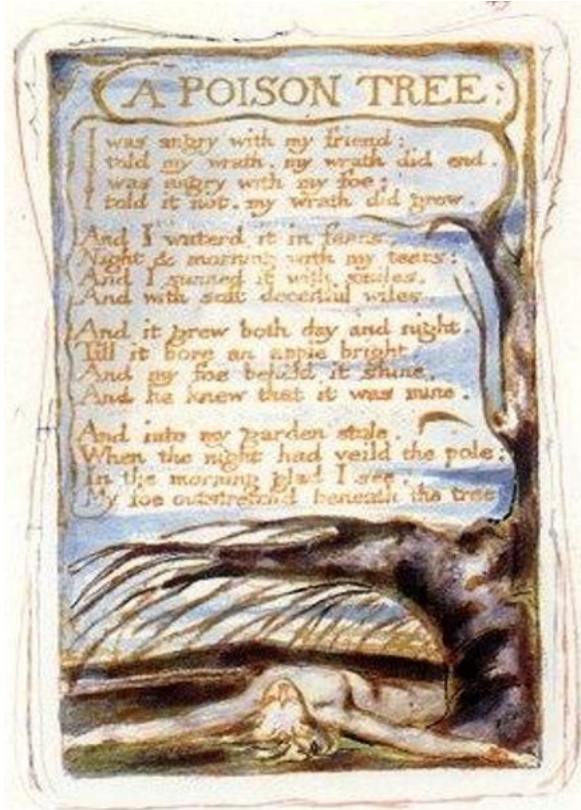 A POISON TREE.
I was angry with my friend:
I told my wrath, my wrath did end.
I was angry with my foe:
I told it not, my wrath did grow.
And I waterd it in fears,
Night & morning with my tears:
And I sunned it with smiles,
And with soft deceitful wiles.
And it grew both day and night.
Till it bore an apple bright.
And my foe beheld it shine,
And he knew that it was mine.
And into my garden stole.
When the night had veild the pole;
In the morning glad I see,
My foe outstretchd beneath the tree